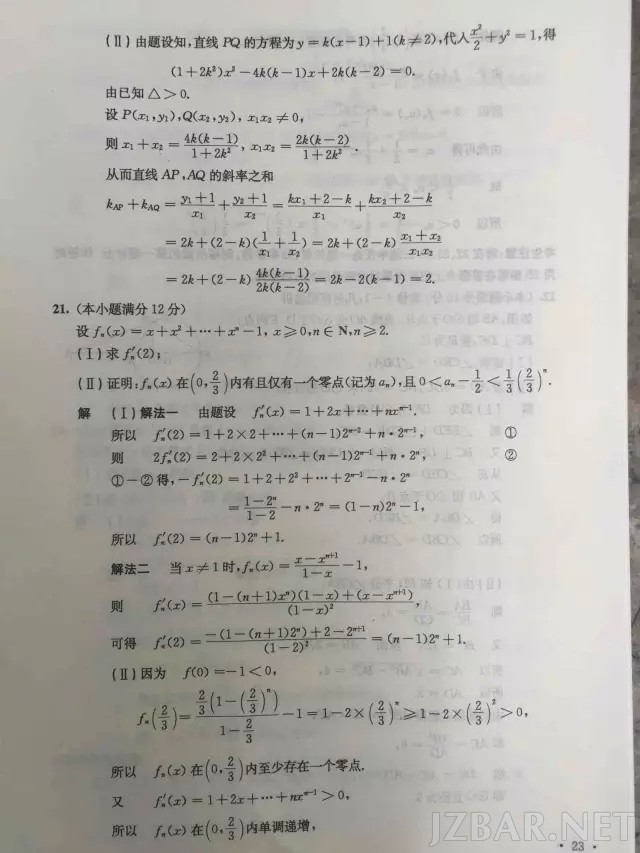 (Ⅱ)由题设知,直线 PQ 的方程为 y = k(x−1)+1(k≠2),代入 x²/2 + y² = 1,得
(1+2k²)x² − 4k(k−1)x + 2k(k−2) = 0.
由已知 △>0.
设 P(x₁,y₁),Q(x₂,y₂), x₁x₂ ≠ 0,
则 x₁ + x₂ = 4k(k−1)/(1+2k²), x₁x₂ = 2k(k−2)/(1+2k²).
从而直线 AP,AQ 的斜率之和
k_AP + k_AQ = (y₁+1)/x₁ + (y₂+1)/x₂ = (kx₁+2−k)/x₁ + (kx₂+2−k)/x₂
= 2k+(2−k)(1/x₁ + 1/x₂) = 2k+(2−k) (x₁+x₂)/(x₁x₂)
= 2k+(2−k) 4k(k−1)/(2k(k−2)) = 2k−2(k−1) = 2.
21. (本小题满分 12 分)
设 fₙ(x) = x+x²+⋯+xⁿ−1, x≥0,n∈N,n≥2.
(Ⅰ)求 fₙ′(2);
(Ⅱ)证明:fₙ(x) 在(0, 2/3)内有且仅有一个零点(记为 aₙ),且 0<aₙ−1/2<1/3(2/3)ⁿ.
解 (Ⅰ)解法一 由题设 fₙ′(x) = 1+2x+⋯+nxⁿ⁻¹.
所以 fₙ′(2) = 1+2×2+⋯+(n−1)2ⁿ⁻²+n·2ⁿ⁻¹, ①
则 2fₙ′(2) = 2+2×2²+⋯+(n−1)2ⁿ⁻¹+n·2ⁿ, ②
①−②得,−fₙ′(2) = 1+2+2²+⋯+2ⁿ⁻¹−n·2ⁿ
= (1−2ⁿ)/(1−2) −n·2ⁿ = (1−n)2ⁿ−1,
所以 fₙ′(2) = (n−1)2ⁿ+1.
解法二 当 x≠1 时,fₙ(x) = (x−xⁿ⁺¹)/(1−x) −1,
则 fₙ′(x) = ((1−(n+1)xⁿ)(1−x)+(x−xⁿ⁺¹))/(1−x)²,
可得 fₙ′(2) = (−(1−(n+1)2ⁿ)+2−2ⁿ⁺¹)/(1−2)² = (n−1)2ⁿ+1.
(Ⅱ)因为 f(0)=−1<0,
fₙ(2/3) = (2/3(1−(2/3)ⁿ))/(1−2/3) −1 = 1−2×(2/3)ⁿ ≥ 1−2×(2/3)² > 0,
所以 fₙ(x) 在(0, 2/3)内至少存在一个零点.
又 fₙ′(x) = 1+2x+⋯+nxⁿ⁻¹>0,
所以 fₙ(x) 在(0, 2/3)内单调递增,
JZBAR.NET
· 23 ·